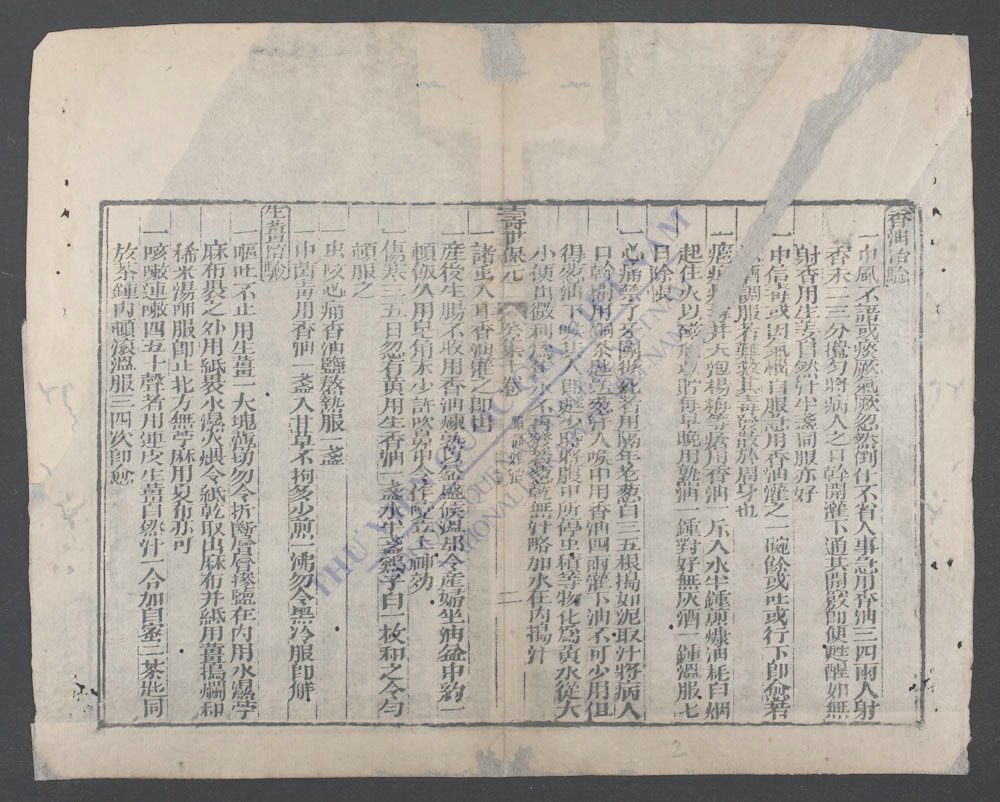 香油治驗
一中風不語或痰厥氣厥忽然倒仆不省人事急用香油三四兩入射
香末二三分攪勻將病人之口幹開灌下通其關竅即便甦醒如無
射香用生姜自然汁半盞同服亦好
一中信毒或因氣惱自服急用香油灌之一碗餘或吐或行下即愈若
調服者難救其毒發散於周身也
油一斤入水半鍾煎煉油耗白烟
起住火以磁 貯 每早晚用熟油一鍾對好無灰酒一鍾溫服七
日除根
一心痛 了牙關欲死者用隔年老葱白三五根搗如泥取汁將病人
口幹開用銅茶匙 葱汁入喉中用香油四兩灌下油不可少用但
得葱油下喉其人即 少時將腹中所停虫積等物化為黃水從大
小便出微利 不再發 葱乾無汁略加水在內搗汁
壽世保元
癸集十卷
二
一諸虫入耳香油灌之即出
一產後生腸不收用香油 熱以盆盛候溫却令產婦坐油盆中約一
頓飯久用皂角末少許吹鼻中令作嚏立上神効
一傷寒三五日忽有黃用生香油一盞水半盞鷄子白一枚和之令勻
頓服之
一虫咬心痛香油鹽熬熟服一盞
一中菌毒用香油一盞入甘草不拘多少煎一沸勿令黑冷服即解
生薑治驗
一嘔吐不止用生薑一大塊直切勿令折斷層層摻鹽在內用水濕苧
麻布裹之外用紙裹水濕火煨令紙乾取出麻布并紙用薑搗爛和
稀米湯 服即止北方無苧麻用夏布亦可
一咳嗽連嗽四五十聲者用連皮生薑自然汁一合加白蜜二茶匙同
放茶鍾內頓滾溫服三四次即愈
THƯ VIỆN QUỐC GIA VIỆT NAM
2